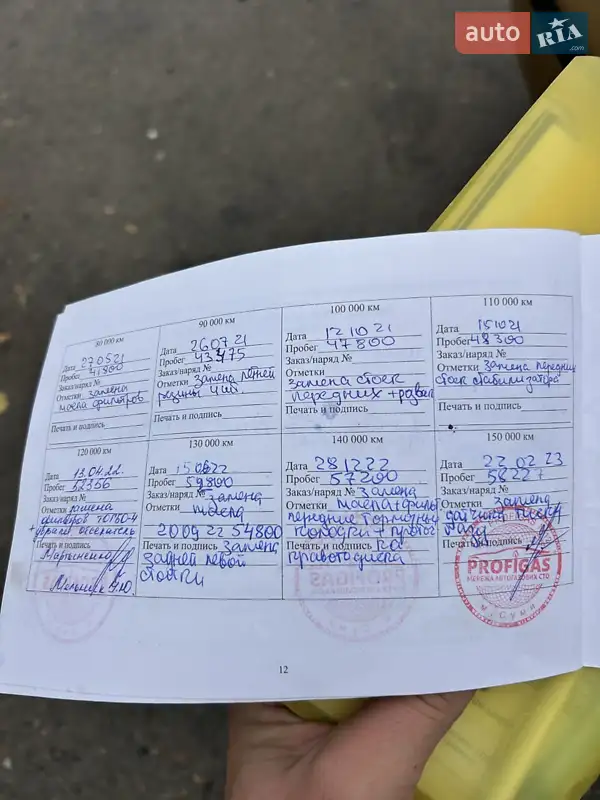 auto RIA .com
80 000 км
Дата 27.05.21
Пробег 41900
Заказ/наряд №
Отметки замена
масла фильтров
Печать и подпись
90 000 км
Дата 26.07.21
Пробег 43475
Заказ/наряд №
Отметки замена летней
резины 4 шт.
Печать и подпись
100 000 км
Дата 12.10.21
Пробег 47800
Заказ/наряд №
Отметки
замена стоек
передних + развал
Печать и подпись
110 000 км
Дата 15.10.21
Пробег 48300
Заказ/наряд №
Отметки замена передних
стоек стабилизатора
Печать и подпись
120 000 км
Дата 13.04.22.
Пробег 52356
Заказ/наряд №
Отметки
фильтров
Печать и подпись
130 000 км
Дата
Пробег 59800
Заказ/наряд № замена
Отметки масла
20 09 22 54800
Печать и подпись замена
задней левой
стойки
140 000 км
Дата 28.12.22
Пробег 57200
Заказ/наряд № замена
Отметки масла+фильт
передние тормозные
колодки +
Печать и подпись
правого диска
150 000 км
Дата 22.02.23
Пробег 5822
Заказ/наряд №
Отметки замена
датчика
Печать и подпись
PROFIGAS
МЕРЕЖА АВТОГАЗОВИХ СТО
м. Суми
12